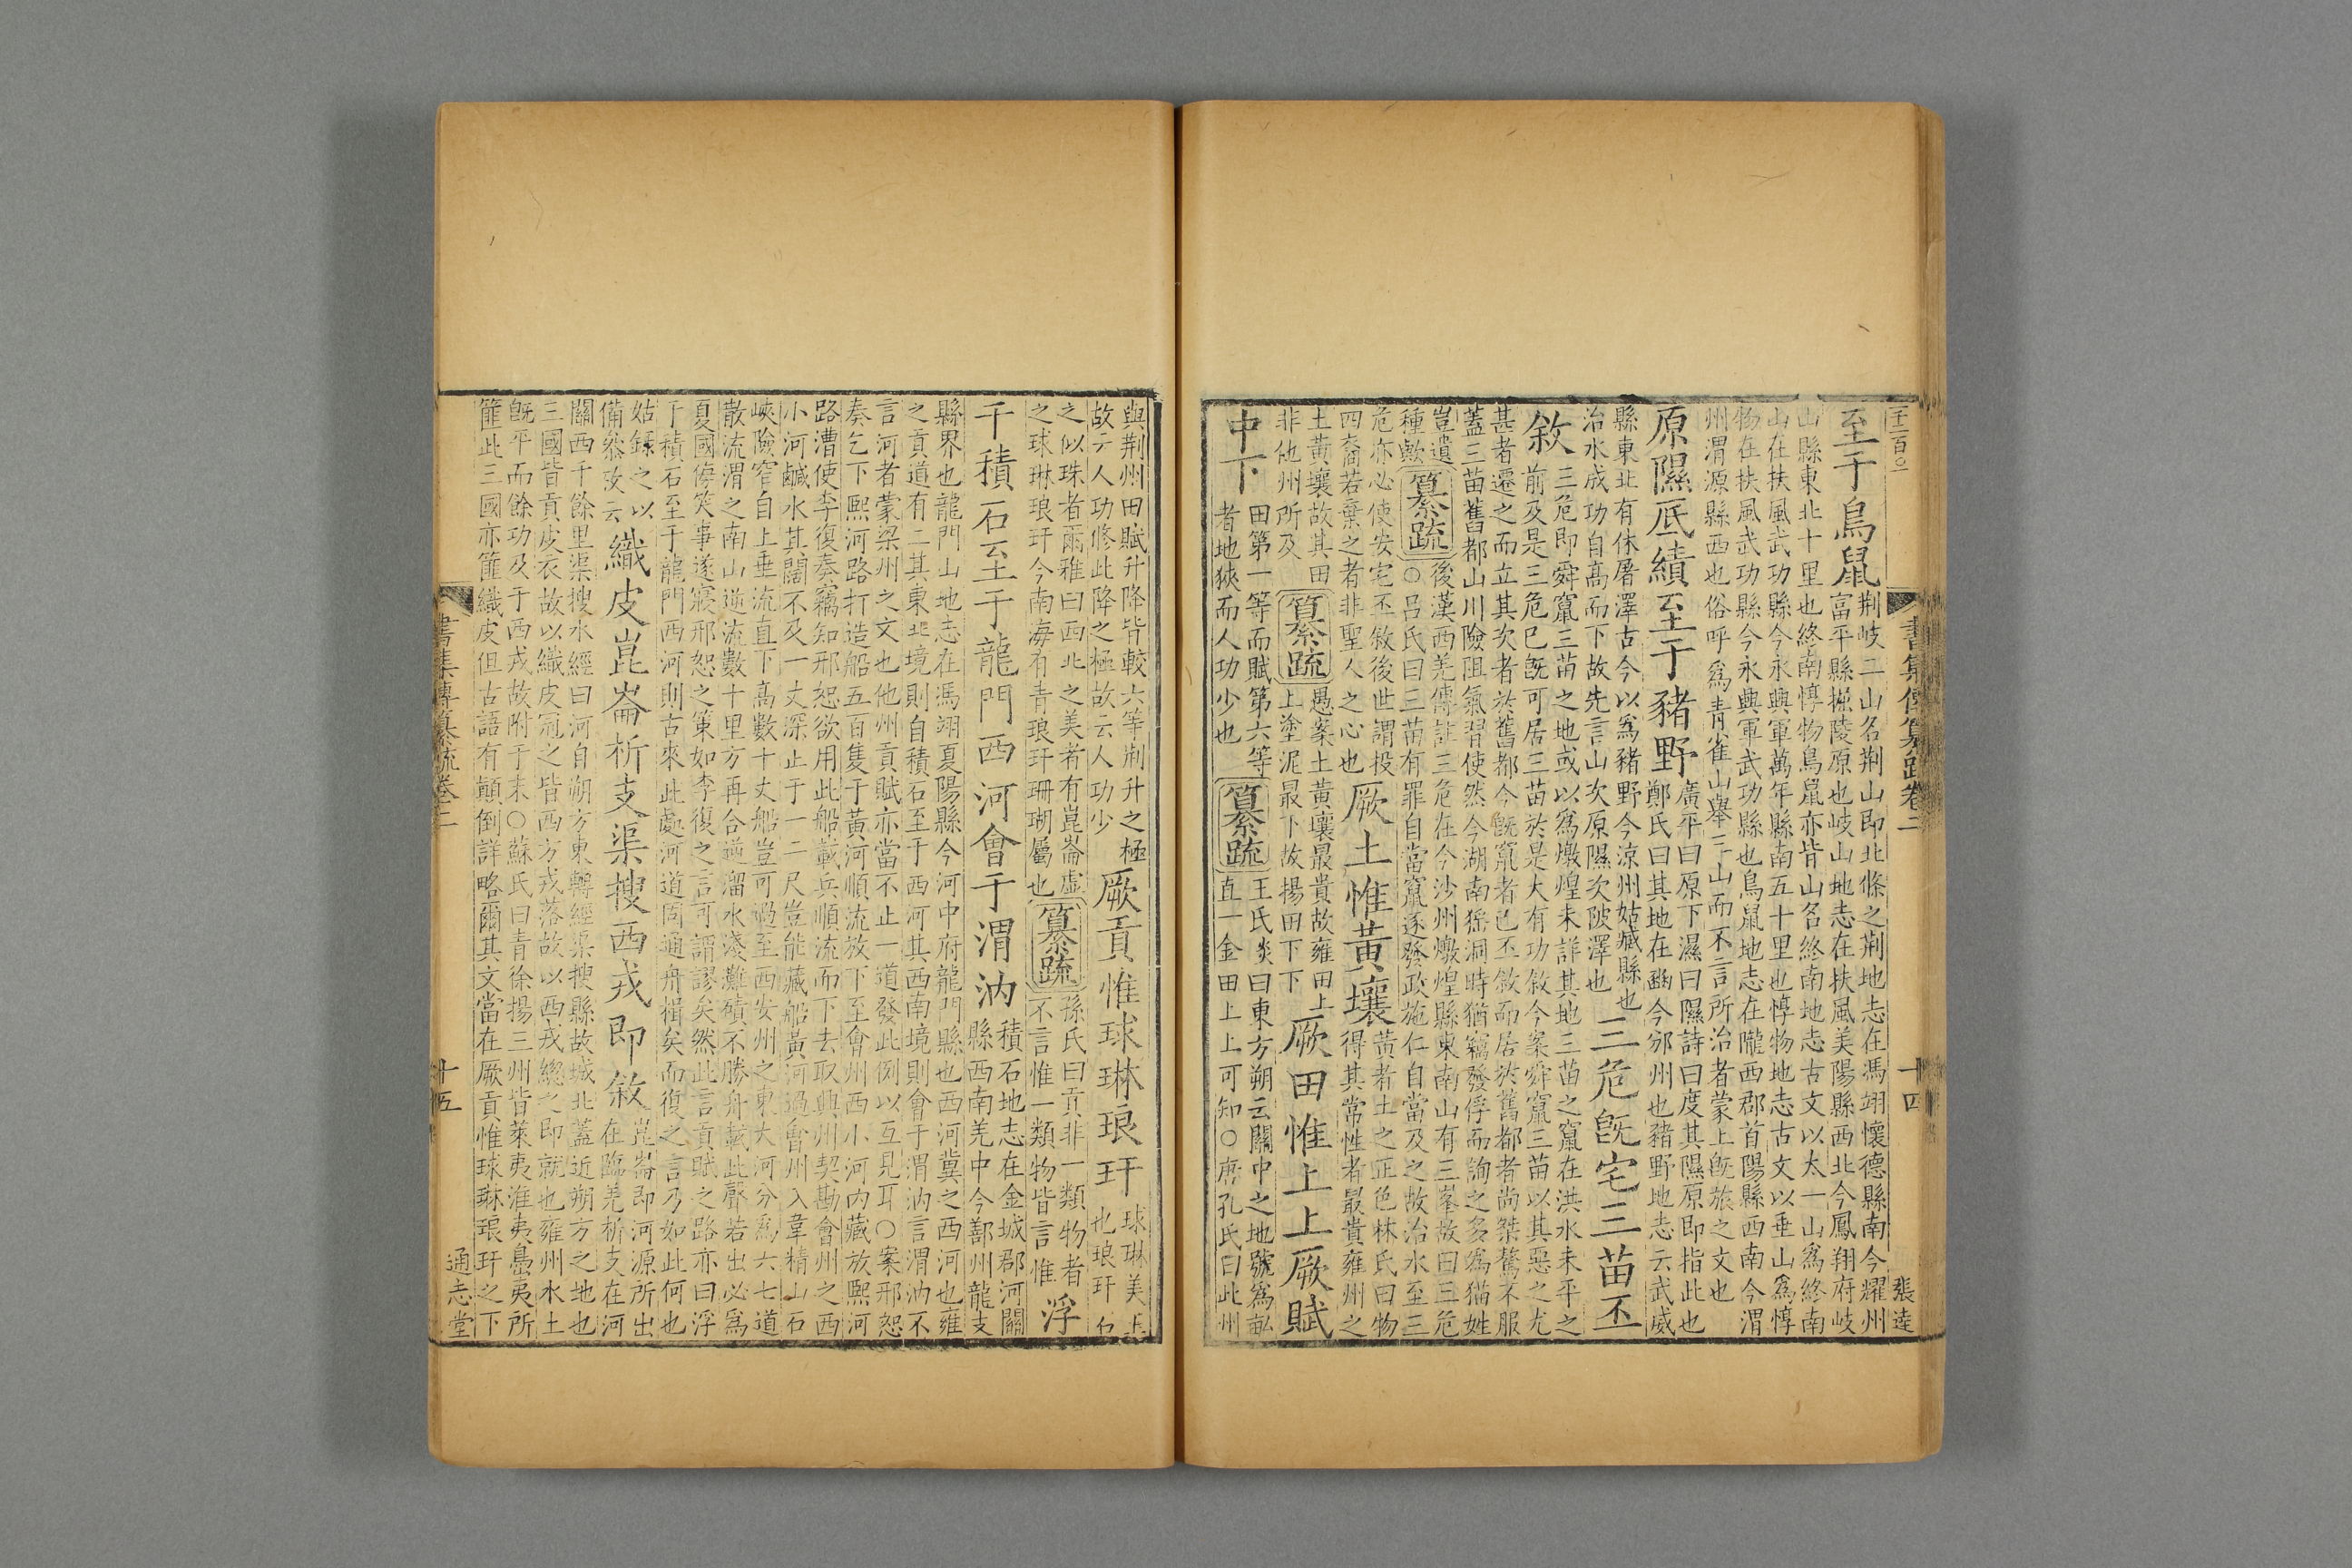 書集傳纂疏卷二
十四
至于鳥鼠
荆岐二山名荆山即北條之荆地志在馮翊懷德縣南今耀州
富平縣掘陵原也岐山地志在扶風美陽縣西北今鳳翔府岐
山縣東北十里也終南惇物鳥鼠亦皆山名終南地志古文以太一山爲終南
山在扶風武功縣今永興軍萬年縣南五十里也惇物地志古文以垂山爲惇
物在扶風武功縣今永興軍武功縣也鳥鼠地志在隴西郡首陽縣西南今渭
州渭源縣西也俗呼爲青雀山舉三山而不言所治者蒙上旣旅之文也
原隰厎績至于豬野
廣平曰原下濕曰隰詩曰度其隰原即指此也
鄭氏曰其地在豳今邠州也豬野地志云武威
縣東北有休屠澤古今以爲豬野今涼州姑臧縣也
治水成功自高而下故先言山次原隰次陂澤也
三危旣宅三苗丕
敘
三危即舜竄三苗之地或以爲燉煌未詳其地三苗之竄在洪水未平之
前及是三危已旣可居三苗於是大有功敘今案舜竄三苗以其惡之尤
甚者遷之而立其次者於舊都今旣竄者已丕敘而居於舊都者尚桀驁不服
蓋三苗舊都山川險阻氣習使然今湖南猺洞時猶竊發俘而詢之多爲猫姓
豈遺
種歟
纂疏
後漢西羌傳註三危在今沙州燉煌縣東南山有三峯故曰三危
○呂氏曰三苗有罪自當竄逐發政施仁自當及之故治水至三
危亦必使安宅丕敘後世謂投
四裔若棄之者非聖人之心也
厥土惟黄壤
黄者土之正色林氏曰物
得其常性者最貴雍州之
土黄壤故其田
非他州所及
纂疏
愚案土黄壤最貴故雍田上
上塗泥最下故揚田下下
厥田惟上上厥賦
中下
田第一等而賦第六等
者地狹而人功少也
纂疏
王氏炎曰東方朔云關中之地號爲畝
直一金田上上可知○唐孔氏曰此州
與荆州田賦升降皆較六等荆升之極
故云人功修此降之極故云人功少
厥貢惟球琳琅玕
球琳美玉
也琅玕石
之似珠者爾雅曰西北之美者有崑崙虛
之球琳琅玕今南海有青琅玕珊瑚屬也
纂疏
孫氏曰貢非一類物者
不言惟一類物皆言惟
浮
于積石至于龍門西河會于渭汭
積石地志在金城郡河關
縣西南羌中今鄯州龍支
縣界也龍門山地志在馮翊夏陽縣今河中府龍門縣也西河冀之西河也雍
之貢道有二其東北境則自積石至于西河其西南境則會于渭汭言渭汭不
言河者蒙梁州之文也他州貢賦亦當不止一道發此例以互見耳○案邢恕
奏乞下熙河路打造船五百隻于黄河順流放下至會州西小河内藏放熙河
路漕使李復奏竊知邢恕欲用此船載兵順流而下去取興州契勘會州之西
小河鹹水其闊不及一丈深止于一二尺豈能藏船黄河過會州入韋精山石
峽險窄自上垂流直下高數十丈船豈可過至西安州之東大河分爲六七道
散流渭之南山逆流數十里方再合逆溜水淺灘磧不勝舟載此聲若出必爲
夏國侮笑事遂寢邢恕之策如李復之言可謂謬矣然此言貢賦之路亦曰浮
于積石至于龍門西河則古來此處河道固通舟楫矣而復之言乃如此何也
姑錄之以
備叅攷云
織皮崑崙析支渠搜西戎即敘
崑崙即河源所出
在臨羌析支在河
關西千餘里渠搜水經曰河自朔方東轉經渠搜縣故城北蓋近朔方之地也
三國皆貢皮衣故以織皮冠之皆西方戎落故以西戎總之即就也雍州水土
旣平而餘功及于西戎故附于末○蘇氏曰青徐揚三州皆萊夷淮夷島夷所
篚此三國亦篚織皮但古語有顛倒詳略爾其文當在厥貢惟球琳琅玕之下
書集傳纂疏卷二
十五
通志堂